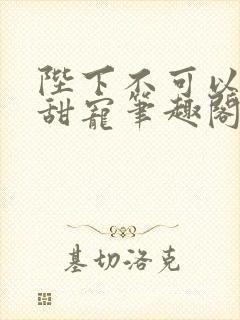 陛下不可以
甜寵筆趣閣
基切洛克